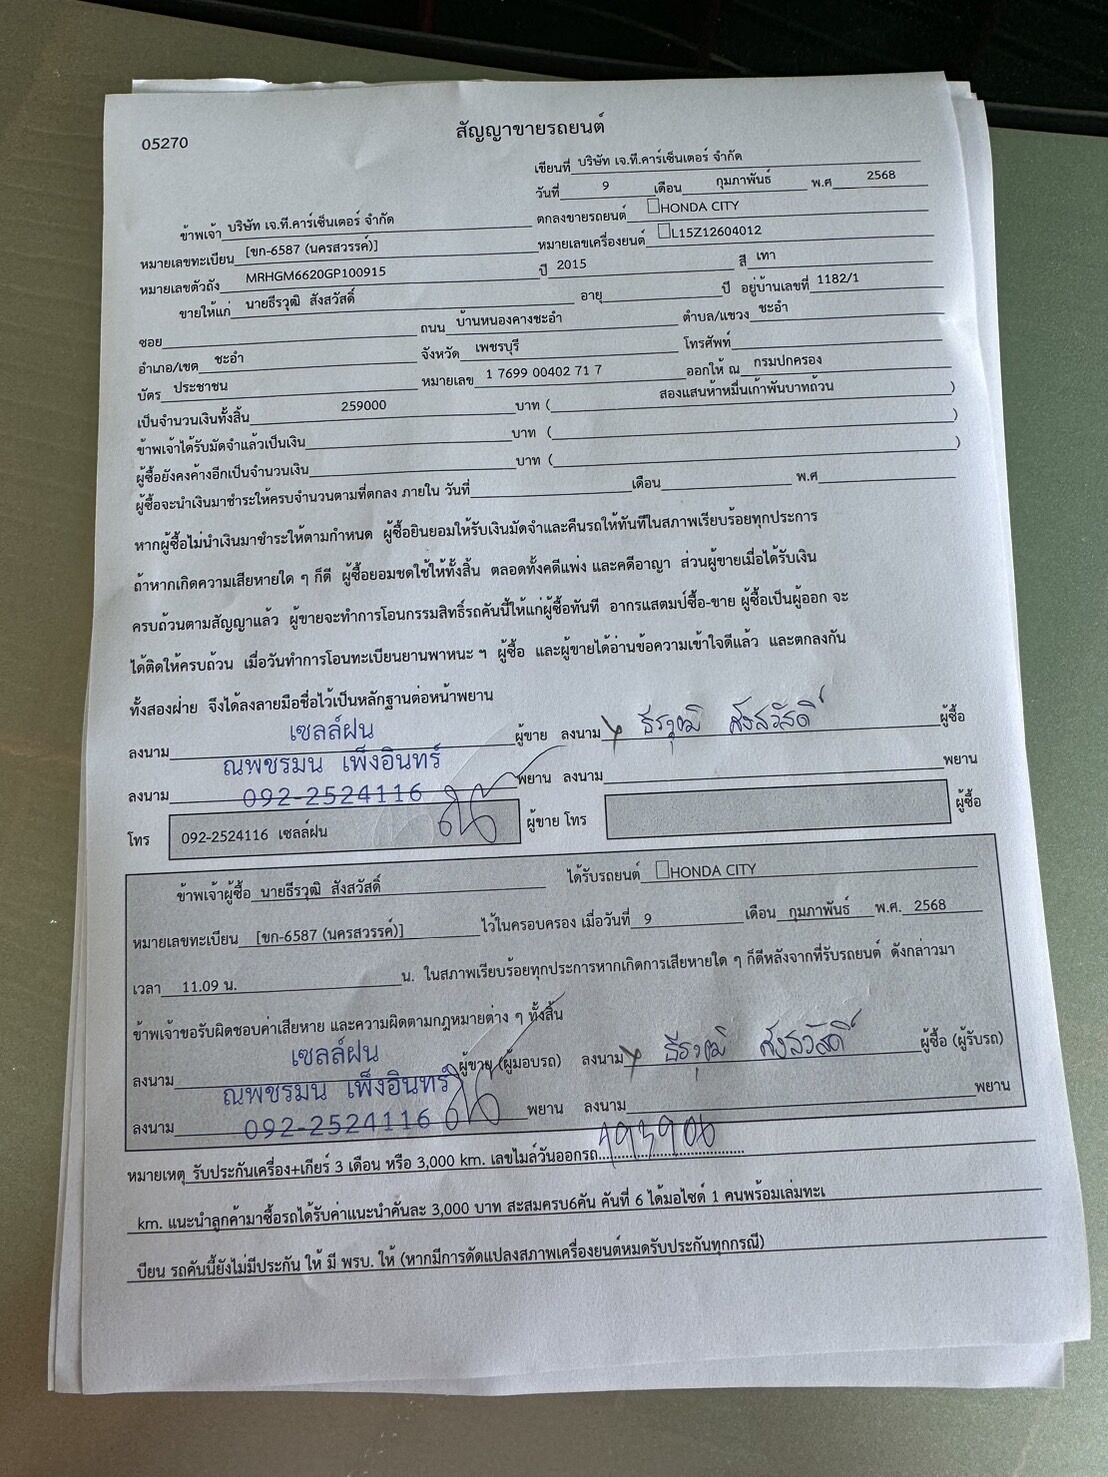 05270
สัญญาขายรถยนต์
เขียนที่ บริษัท เจ.ที.คาร์เซ็นเตอร์ จำกัด
วันที่ 9 เดือน กุมภาพันธ์ พ.ศ 2568
ข้าพเจ้า บริษัท เจ.ที.คาร์เซ็นเตอร์ จำกัด ตกลงขายรถยนต์ HONDA CITY
หมายเลขทะเบียน [ขก-6587 (นครสวรรค์)] หมายเลขเครื่องยนต์ L15Z12604012
หมายเลขตัวถัง MRHGM6620GP100915 ปี 2015 สี เทา
ขายให้แก่ นายธีรวุฒิ สังสวัสดิ์ อายุ ปี อยู่บ้านเลขที่ 1182/1
ซอย ถนน บ้านหนองคางชะอำ ตำบล/แขวง ชะอำ
อำเภอ/เขต ชะอำ จังหวัด เพชรบุรี โทรศัพท์
บัตร ประชาชน หมายเลข 1 7699 00402 71 7 ออกให้ ณ กรมปกครอง
เป็นจำนวนเงินทั้งสิ้น 259000 บาท ( สองแสนห้าหมื่นเก้าพันบาทถ้วน )
ข้าพเจ้าได้รับมัดจำแล้วเป็นเงิน บาท ( )
ผู้ซื้อยังคงค้างอีกเป็นจำนวนเงิน บาท ( )
ผู้ซื้อจะนำเงินมาชำระให้ครบจำนวนตามที่ตกลง ภายใน วันที่ เดือน พ.ศ
หากผู้ซื้อไม่นำเงินมาชำระให้ตามกำหนด ผู้ซื้อยินยอมให้รับเงินมัดจำและคืนรถให้ทันทีในสภาพเรียบร้อยทุกประการ
ถ้าหากเกิดความเสียหายใด ๆ ก็ดี ผู้ซื้อยอมชดใช้ให้ทั้งสิ้น ตลอดทั้งคดีแพ่ง และคดีอาญา ส่วนผู้ขายเมื่อได้รับเงิน
ครบถ้วนตามสัญญาแล้ว ผู้ขายจะทำการโอนกรรมสิทธิ์รถคันนี้ให้แก่ผู้ซื้อทันที อากรแสตมป์ซื้อ-ขาย ผู้ซื้อเป็นผู้ออก จะ
ได้ติดให้ครบถ้วน เมื่อวันทำการโอนทะเบียนยานพาหนะ ฯ ผู้ซื้อ และผู้ขายได้อ่านข้อความเข้าใจดีแล้ว และตกลงกัน
ทั้งสองฝ่าย จึงได้ลงลายมือชื่อไว้เป็นหลักฐานต่อหน้าพยาน
ลงนาม เซลล์ฝน ผู้ขาย ลงนาม ธีรวุฒิ สังสวัสดิ์ ผู้ซื้อ
ณพชรมน เพ็งอินทร์
ลงนาม 092-2524116 พยาน ลงนาม พยาน
โทร 092-2524116 เซลล์ฝน ผู้ขาย โทร ผู้ซื้อ
ข้าพเจ้าผู้ซื้อ นายธีรวุฒิ สังสวัสดิ์ ได้รับรถยนต์ HONDA CITY
หมายเลขทะเบียน [ขก-6587 (นครสวรรค์)] ไว้ในครอบครอง เมื่อวันที่ 9 เดือน กุมภาพันธ์ พ.ศ. 2568
เวลา 11.09 น. น. ในสภาพเรียบร้อยทุกประการหากเกิดการเสียหายใด ๆ ก็ดีหลังจากที่รับรถยนต์ ดังกล่าวมา
ข้าพเจ้าขอรับผิดชอบค่าเสียหาย และความผิดตามกฎหมายต่าง ๆ ทั้งสิ้น
ลงนาม เซลล์ฝน ผู้ขาย (ผู้มอบรถ) ลงนาม ธีรวุฒิ สังสวัสดิ์ ผู้ซื้อ (ผู้รับรถ)
ณพชรมน เพ็งอินทร์
ลงนาม 092-2524116 พยาน ลงนาม พยาน
หมายเหตุ รับประกันเครื่อง+เกียร์ 3 เดือน หรือ 3,000 km. เลขไมล์วันออกรถ
km. แนะนำลูกค้ามาซื้อรถได้รับค่าแนะนำคันละ 3,000 บาท สะสมครบ6คัน คันที่ 6 ได้มอไซด์ 1 คนพร้อมเล่มทะเ
บียน รถคันนี้ยังไม่มีประกัน ให้ มี พรบ. ให้ (หากมีการดัดแปลงสภาพเครื่องยนต์หมดรับประกันทุกกรณี)